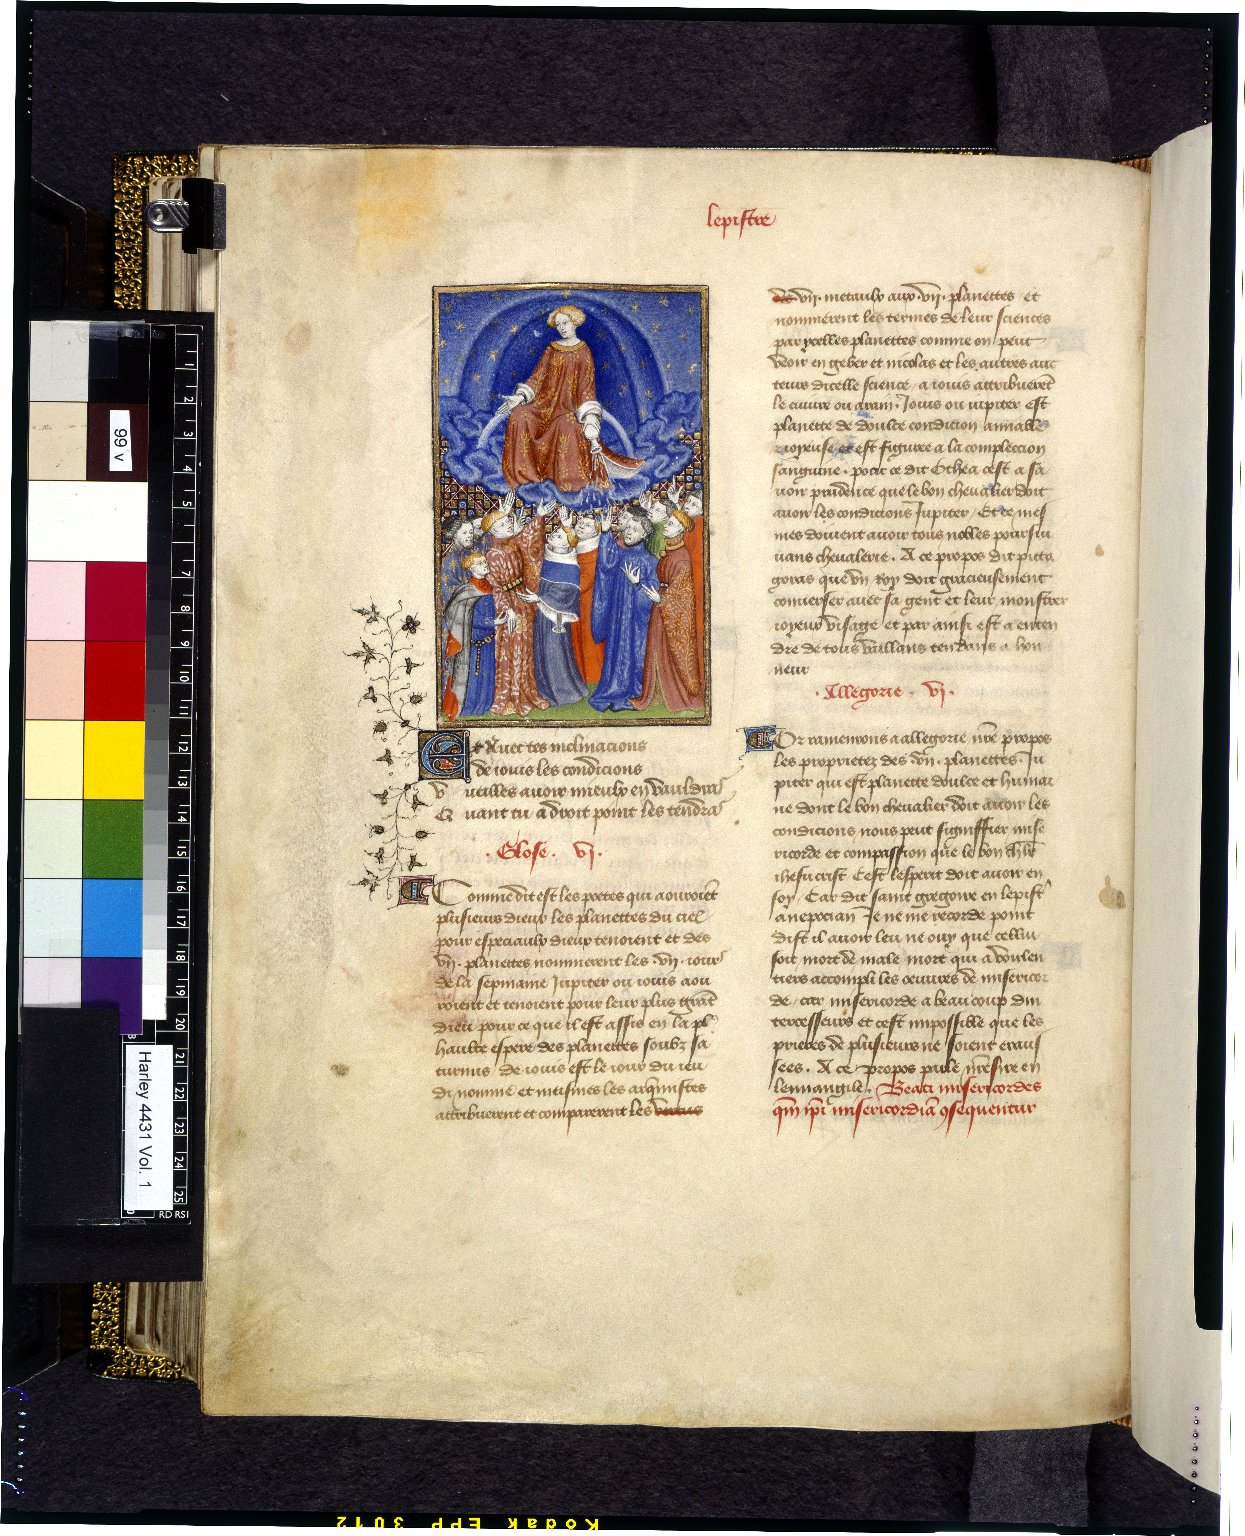 lepistre
Et Avec tes inclinacions
de iovis les condicions
Vueilles avoir mieulx en vauldras
Quant tu a droit point les tendras
Glose . vi .
Comme dit est les poetes qui aouroiẽt
plusieurs dieux les planettes du ciel
pour especiaulx dieux tenoient et des
.vii. planettes nommerent les .vii. iours
de la sepmaine Iupiter ou iovis aou
roient et tenoient pour leur plus grãt
dieu pour ce que il est assis en la pl9
haulte espere des planettes soubz sa
turnus . de iovis est le iour du ieu
di nomme et meismes les arquemistes
attribuerent et comparerent les vertus
des .vii. metaulx aux .vii. planettes et
nommerent les termes de leur sciences
par ycelles planettes comme on peut
veoir en geber et nicolas et les autres auc
teurs dicelle science / a iovis attribuerẽt
le cuivre ou arain . Iovis ou iupiter est
planette de doulce condicion amiable
ioyeuse et est figuree a la compleccion
sanguine . pour ce dit Othea cest a sa
voir prudence que le bon chevalier doit
avoir les condicions Iupiter / Et ce mes
mes doivent avoir tous nobles poursui
vans chevalerie . A ce propos dit pitta
goras que vn Roy doit gracieusement
converser avec sa gent et leur monstrer
ioyeux visage et par ainsi est a enten
dre de tous vaillans tendans a hon
neur
. Allegorie . vi .
Or ramenons a allegorie nr̃e propos
les proprietez des .vii. planettes . Iu
piter qui est planette doulce et humai
ne dont le bon chevalier doit avoir les
condicions nous peut signiffier mise
ricorde et compassion que le bon chlr̃
ihesucrist Cest lesperit doit avoir en
soy . Car dit saint gregoire en lepistr̃
a nepocian Je ne me recorde point
dist il avoir leu ne ouy que cellui
soit mort de male mort qui a voulen
tiers accompli les œuvres de misericor
de / car misericorde a beaucoup din
tercesseurs et cest impossible que les
prieres de plusieurs ne soient exaul
sees . A ce propos parle nr̃e sire en
leuuangile . Beati misericordes
qm̃ ipĩ misericordiã ꝯsequentur
99 v
1
2
3
4
5
7
8
9
10
11
12
13
14
15
16
17
18
19
20
21
22
23
24
25
RD RSI
Harley 4431 Vol. 1
Kodak EPP 3012